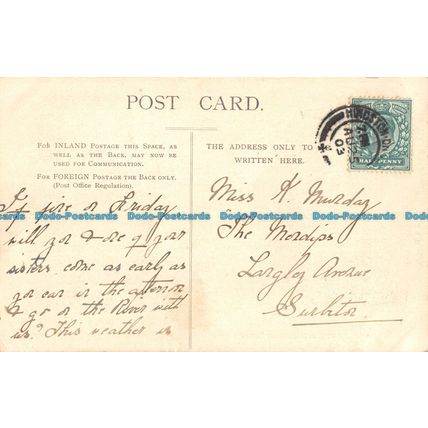 POST CARD.
FOR INLAND POSTAGE THIS SPACE, AS
WELL AS THE BACK, MAY NOW BE
USED FOR COMMUNICATION.
FOR FOREIGN POSTAGE THE BACK ONLY.
(Post Office Regulation).
THE ADDRESS ONLY TO
WRITTEN HERE.
AU
03
HALFPENNY
If fine on Friday
will you & one of your
sisters come as early as
you can in the afternoon
& go on the River with
us? This weather is
Miss K. Murday
The
Langley Avenue
Surbiton
Dodo-Postcards Dodo-Postcards Dodo-Postcards Dodo-Postcards Dodo-Postcards
Dodo-Postcards Dodo-Postcards Dodo-Postcards Dodo-Postcards Dodo-Postcards